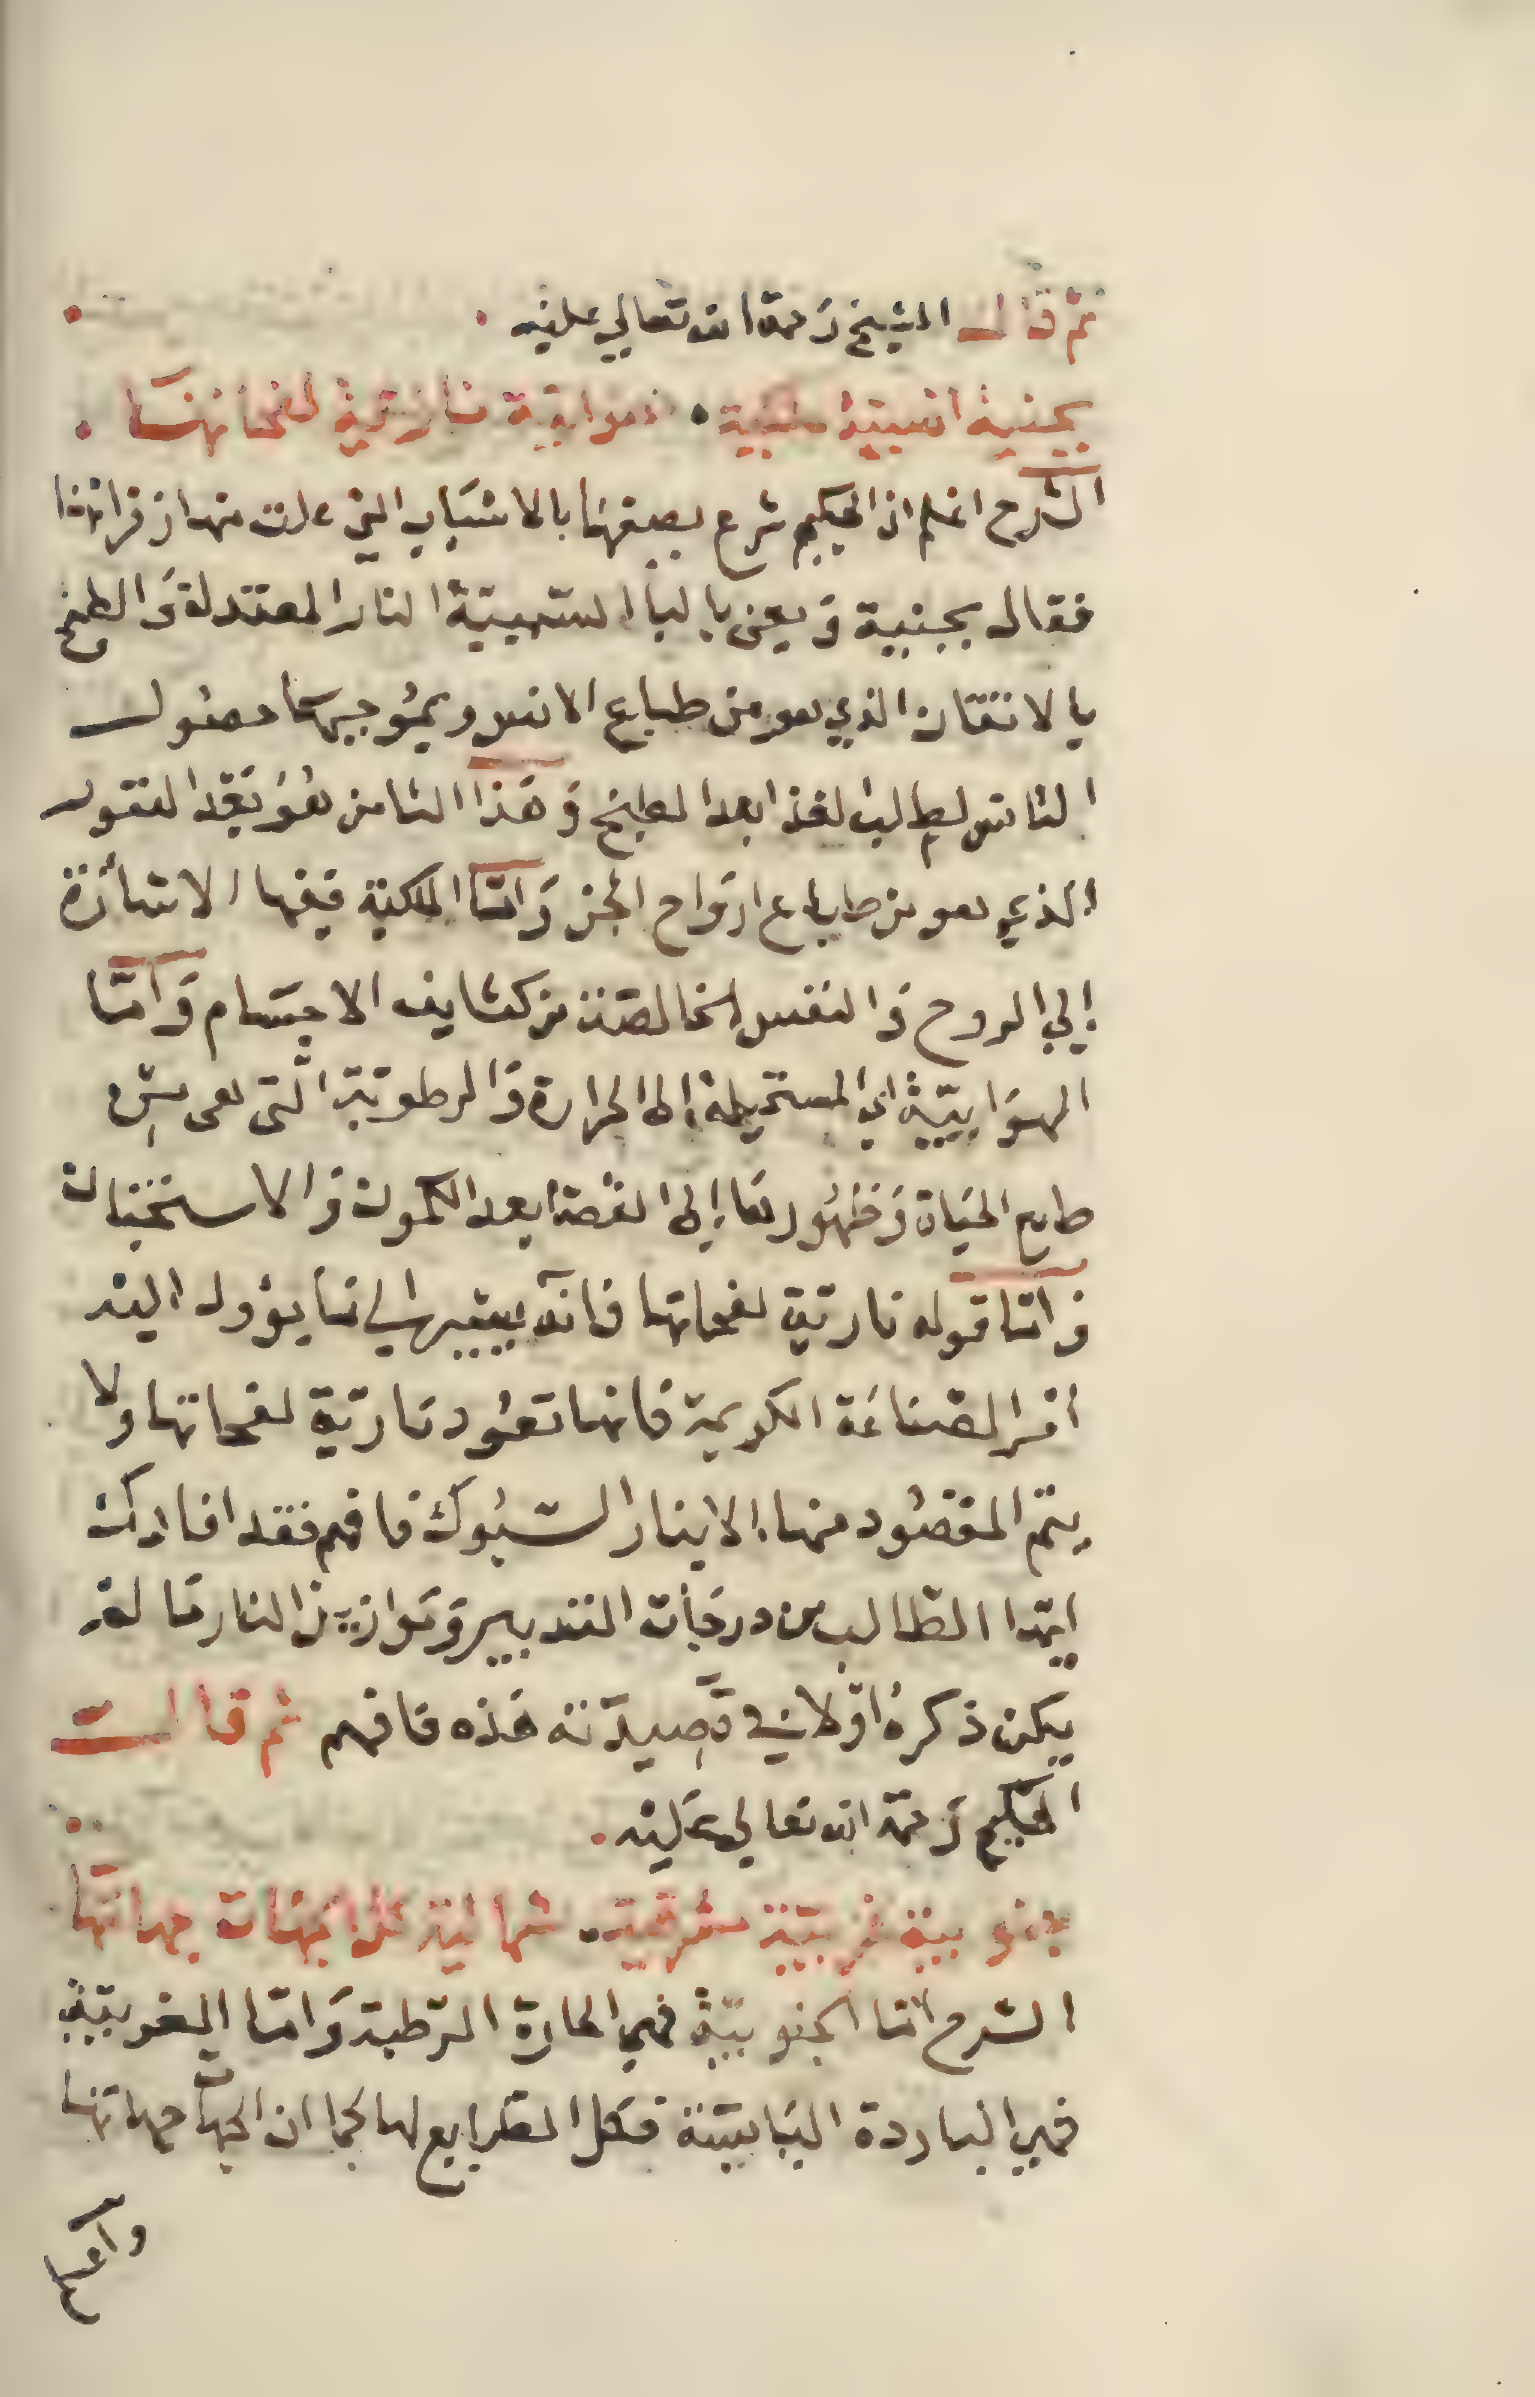 ثم قال الشيخ رحمة الله تعالي عليه
بجنية انسية ملكية هوايية نارية لفحاتها
الشرح اعلم ان الحكيم شرع يصفها بالاسباب التي
فقال بجنية ويعني بالبا السببية النار المعتدلة والطبخ
بالاتقان الذي هو من طباع الانس وبموجبهما حصول
لطالب بعد الطبخ وهذا
الذي هو من طباع ارواح الجن واما الملكية ففيها الاشارة
إلي الروح والنفس الخالصة من كثايف الاجسام واما
الهوايية اي المستحيلة إلى الحرارة والرطوبة التى هى سر
طابع الحياة وظهورها إلى بعد الكمون والاستجنان
واما قوله نارية لفحاتها فانه يشير إلي ما يؤول اليه
امر الصناعة الكريمة فانها تعود نارية لفحاتها ولا
يتم المقصود منها إلا بنار السبوك فافهم فقد افادك
ايها الطالب من درجات التدبير وموازين النار ما لم
يكن ذكره اولا في قصيدته هذه فافهم ثم قال
الحكيم رحمة الله تعالي عليه
جنوبية غربية مشرقية شمالية كل الجهات جهاتها
الشرح أما الجنوبية فهي الحارة الرطبة واما الغربية
فهي الباردة اليابسة فكل الطبايع لها كما ان الجهات جهاتها
واعلم